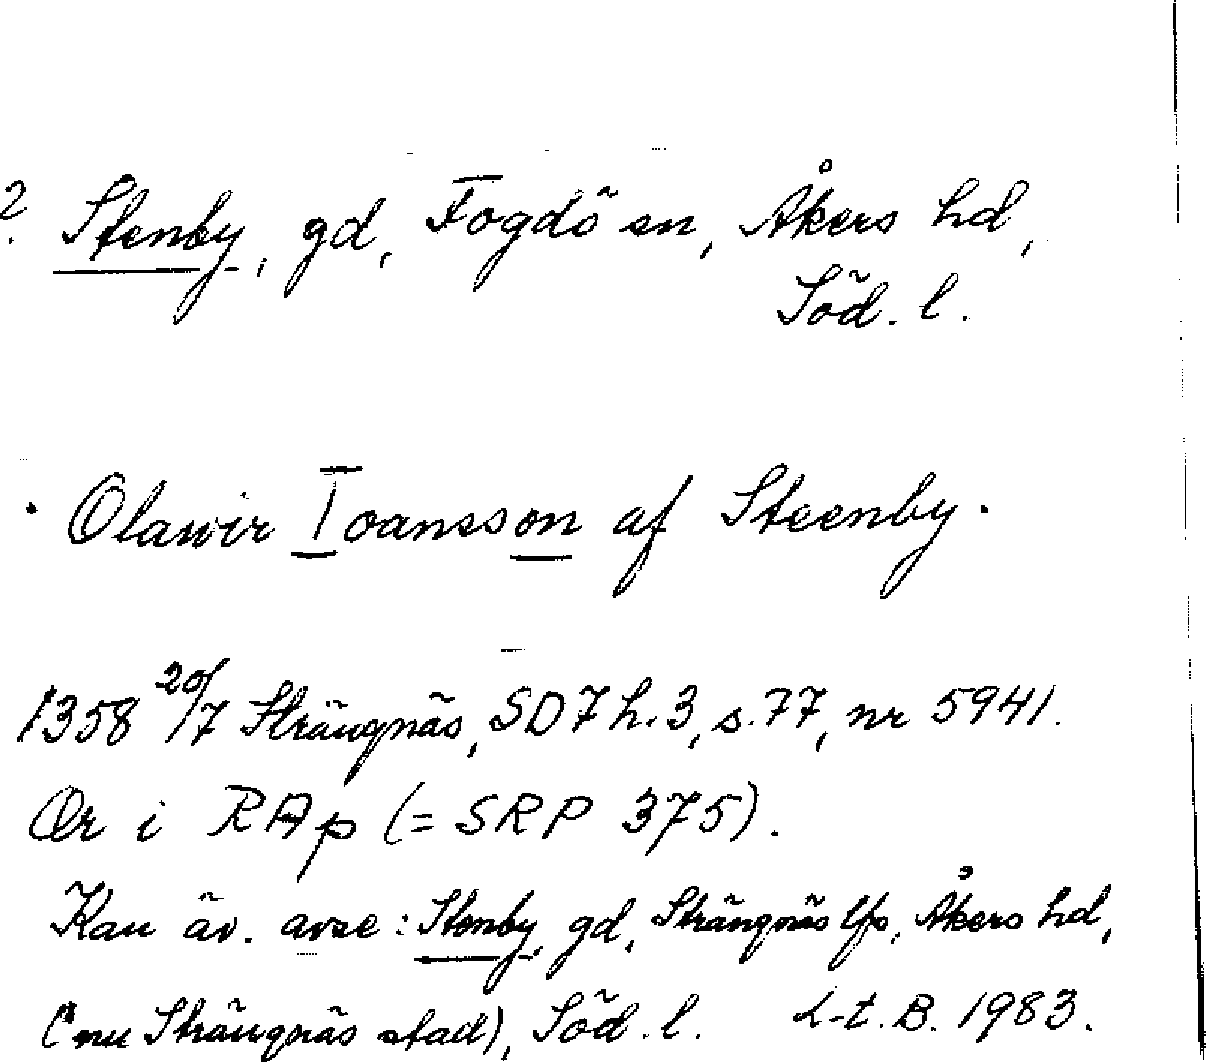 2. Stenby, gd, Fogdö sn, Åkers hd,
Söd. l.
Olawir Ioansson af Steenby.
1358 20/7 Strängnäs, SD 7 h. 3, s. 77, nr 5941.
Or i RAp (= SRP 375).
Kan äv. avse: Stenby, gd, Strängnäs lfs, Åkers hd,
(nu Strängnäs stad), Söd. l. L-t. B. 1983.